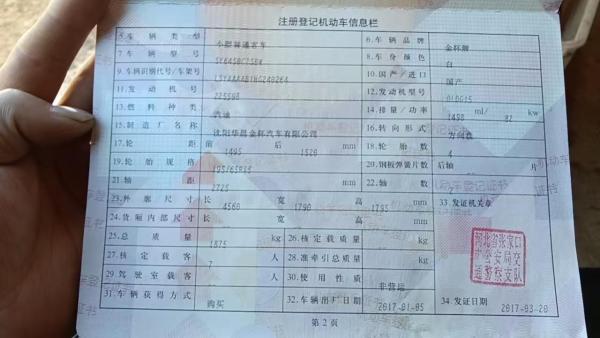 注册登记机动车信息栏
5.车辆类型 小型普通客车 6.车辆品牌 金杯牌
7.车辆型号 8.车身颜色 白
9.车辆识别代号/车架号 10.国产/进口 国产
11.发动机号 12.发动机型号
13.燃料种类 汽油 14.排量/功率 1498 ml/ 82 kw
15.制造厂名称 沈阳华晨金杯汽车有限公司 16.转向形式 方向盘
17.轮距 前 1495 后 1520 mm 18.轮胎数 4
19.轮胎规格 20.钢板弹簧片数 后轴 片
21.轴距 2725 mm 22.轴数 2
23.外廓尺寸 长 4560 宽 1790 高 1795 mm 33.发证机关章
24.货厢内部尺寸 长 宽 高 mm
25.总质量 1875 kg 26.核定载质量 kg
27.核定载客 7 人 28.准牵引总质量 kg
29.驾驶室载客 人 30.使用性质 非营运
31.车辆获得方式 购买 32.车辆出厂日期 2017-01-05 34.发证日期 2017-03-20
河北省张家口
市公安局交
通警察支队
第2页